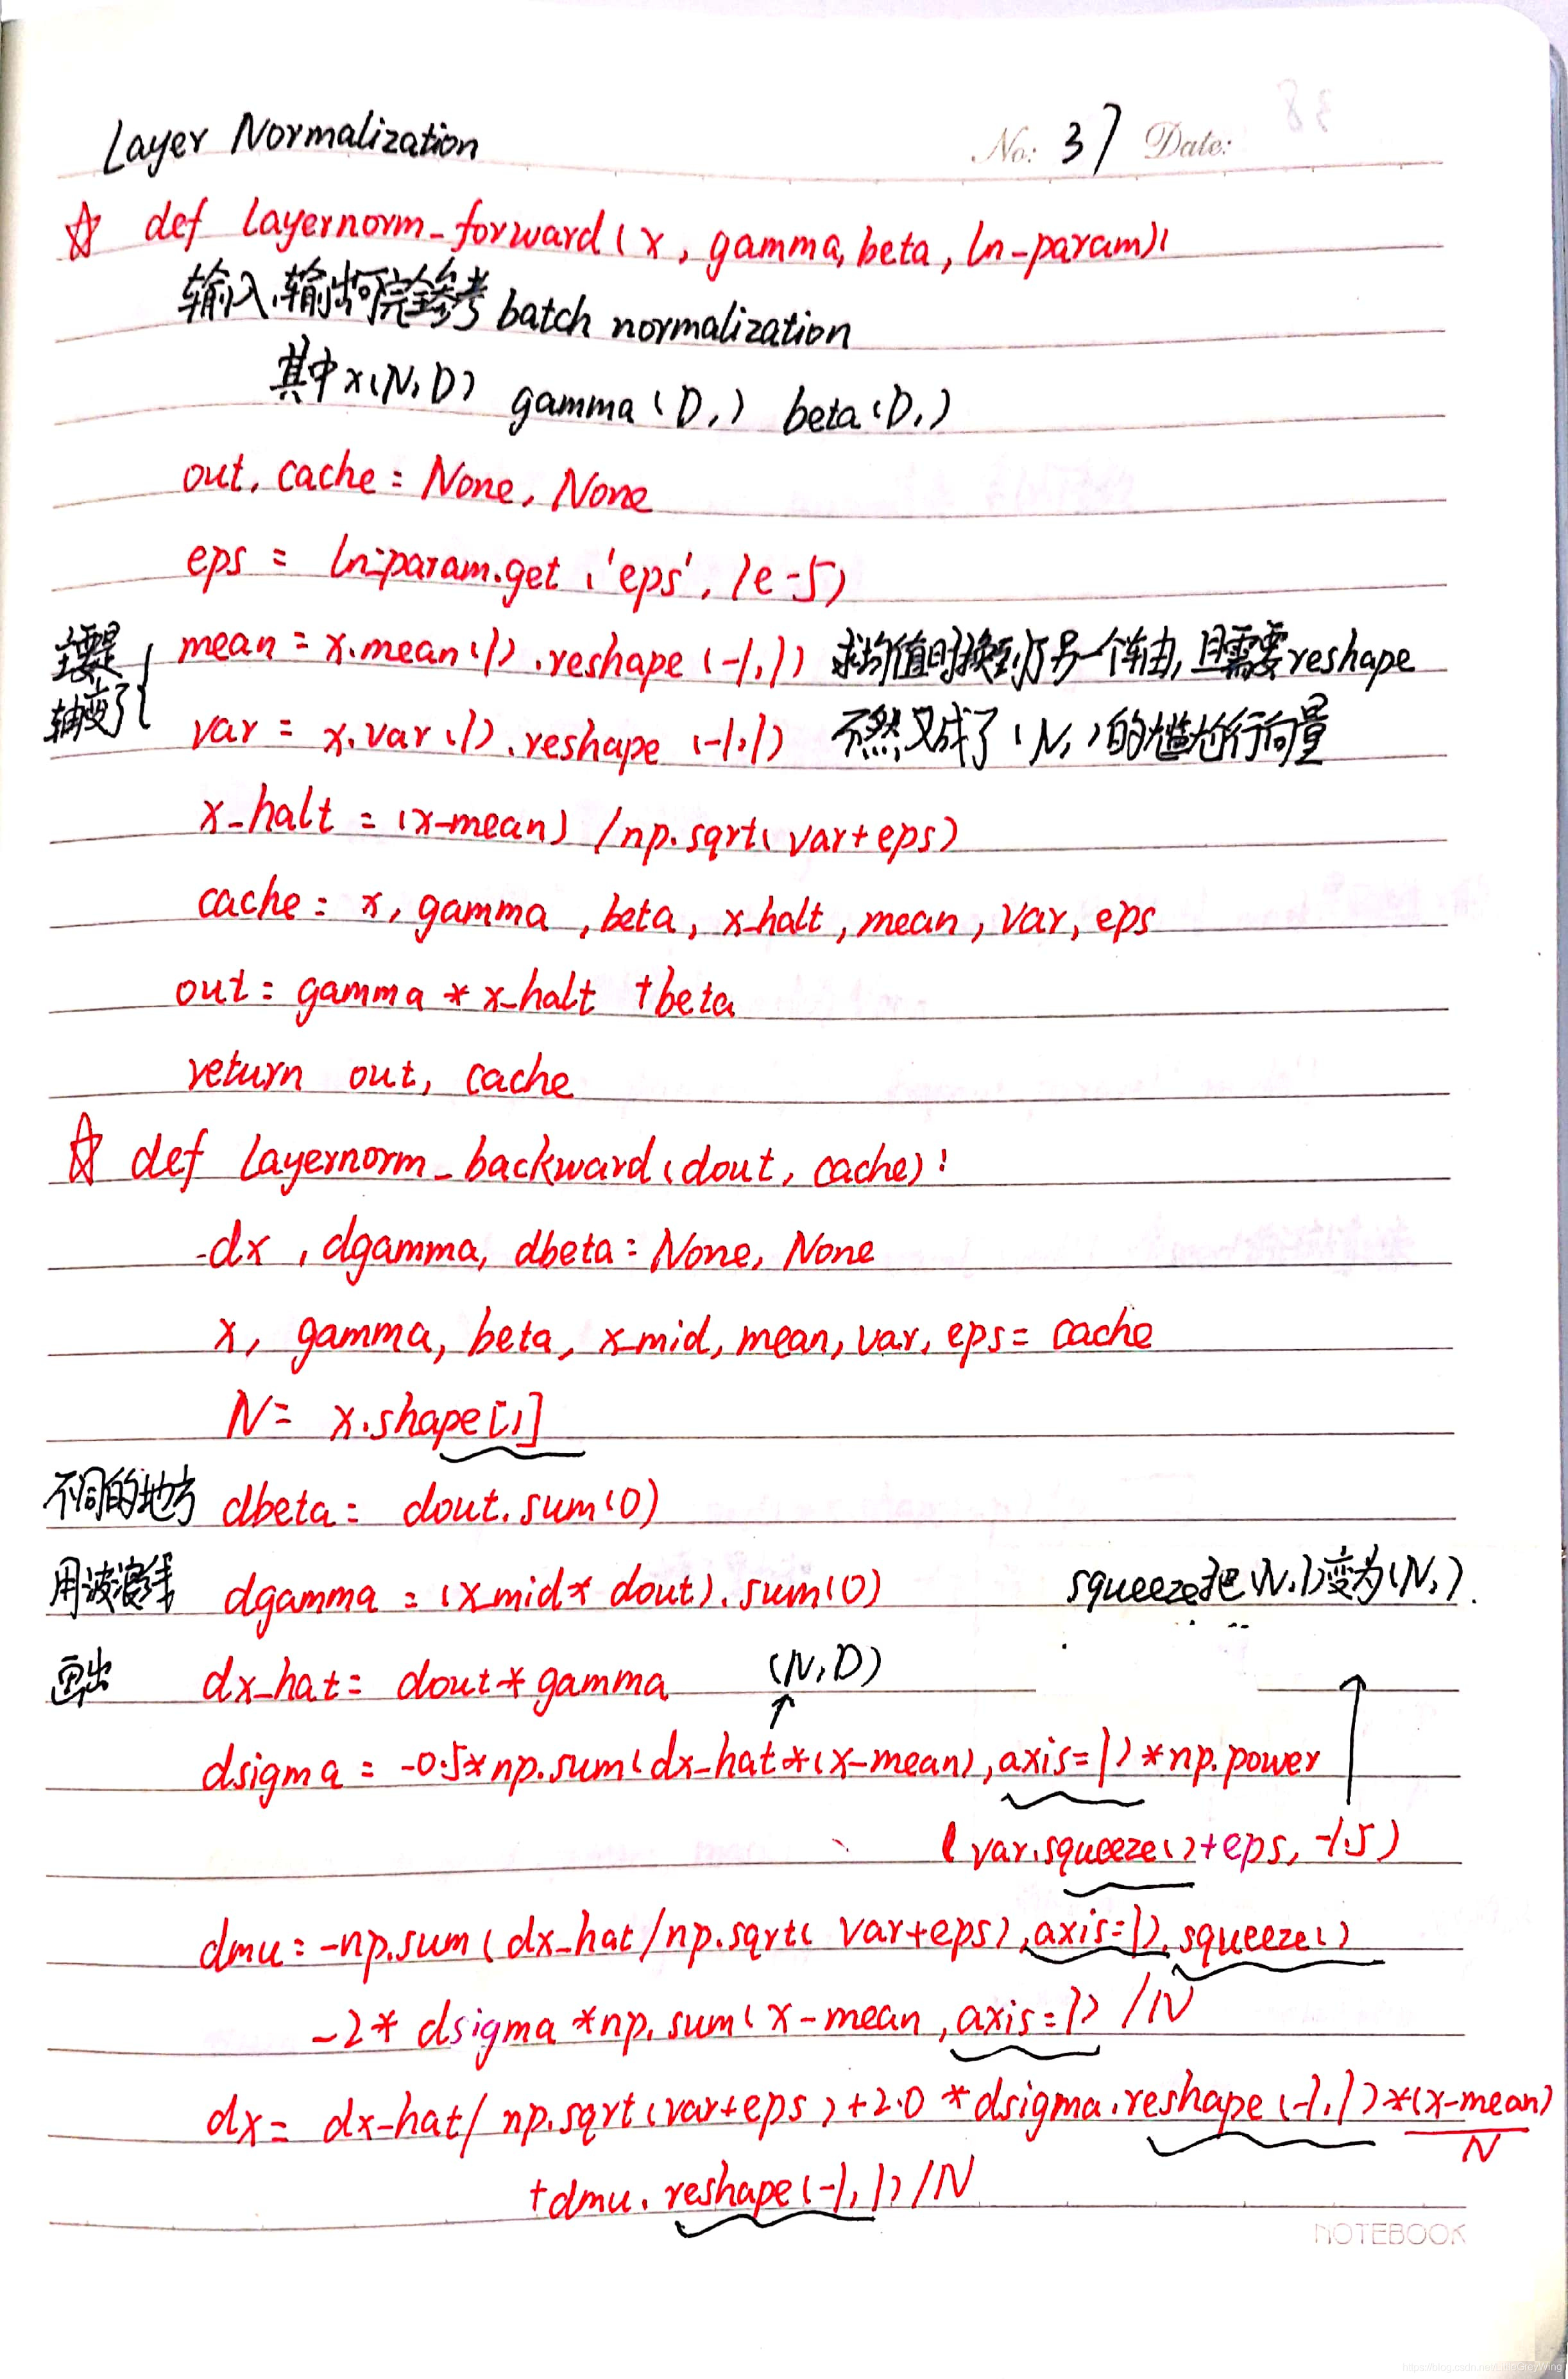 Layer Normalization No: 37 Date:
☆ def layernorm_forward(x, gamma, beta, ln_param):
输入,输出可完全参考 batch normalization
其中x(N,D) gamma(D,) beta(D,)
out, cache = None, None
eps = ln_param.get('eps', 1e-5)
主要是 mean = x.mean(1).reshape(-1,1) 求均值时换到了另一个轴,且需要reshape
轴变了 var = x.var(1).reshape(-1,1) 不然又成了(N,)的尴尬行向量
x_halt = (x-mean) / np.sqrt(var+eps)
cache = x, gamma, beta, x_halt, mean, var, eps
out = gamma * x_halt + beta
return out, cache
☆ def layernorm_backward(dout, cache):
dx, dgamma, dbeta = None, None
x, gamma, beta, x_mid, mean, var, eps = cache
N = x.shape[1]
不同的地方 dbeta = dout.sum(0)
用波浪线 dgamma = (x_mid * dout).sum(0) squeeze把(N,1)变为(N,).
画出 dx_hat = dout * gamma (N,D)
dsigma = -0.5*np.sum(dx_hat*(x-mean), axis=1)*np.power
(var.squeeze()+eps, -1.5)
dmu = -np.sum(dx_hat/np.sqrt(var+eps), axis=1).squeeze()
-2*dsigma*np.sum(x-mean, axis=1)/N
dx = dx_hat/np.sqrt(var+eps)+2.0*dsigma.reshape(-1,1)*(x-mean)/N
+dmu.reshape(-1,1)/N
NOTEBOOK